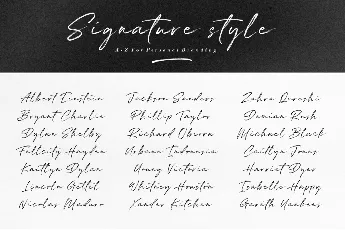 Signature style
A-Z For Personal Branding
Albert Einstein
Bryant Charlie
Dylne Shelby
Felicity Hayden
Kaitlyn Dylan
Lincoln
Nicolas Maduro
Jackson Sanders
Phillip Taylor
Richard Oburn
Urbean Indonesia
Young Victoria
Whitney Houston
Xander Kitchen
Zahra Qureshi
Damian Rush
Michael Black
Caitlyn Jones
Harriet Dyer
Isabelle Happy
Gareth